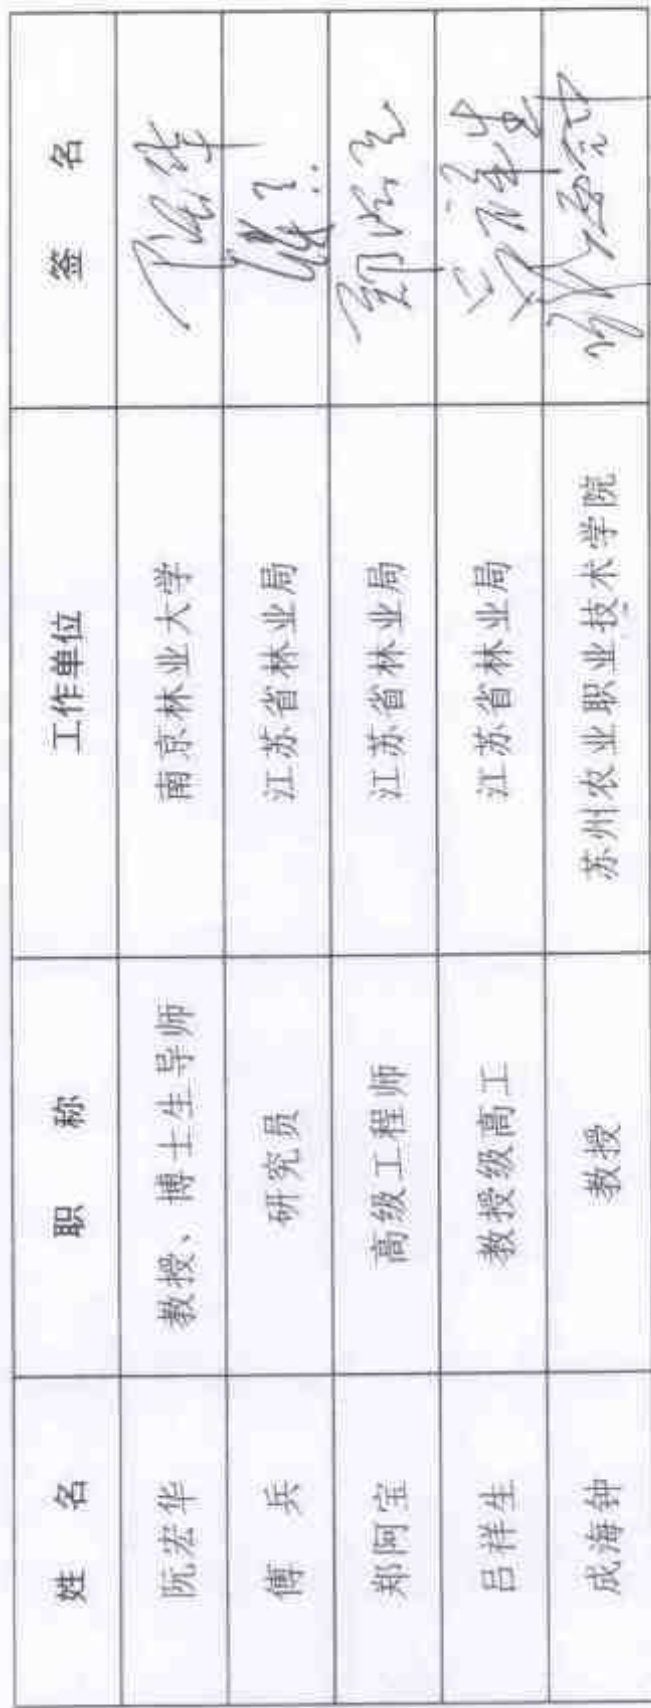 姓 名 职 称 工作单位 签 名
阮宏华 教授、博士生导师 南京林业大学
傅 兵 研究员 江苏省林业局
郑阿宝 高级工程师 江苏省林业局
吕祥生 教授级高工 江苏省林业局
成海钟 教授 苏州农业职业技术学院